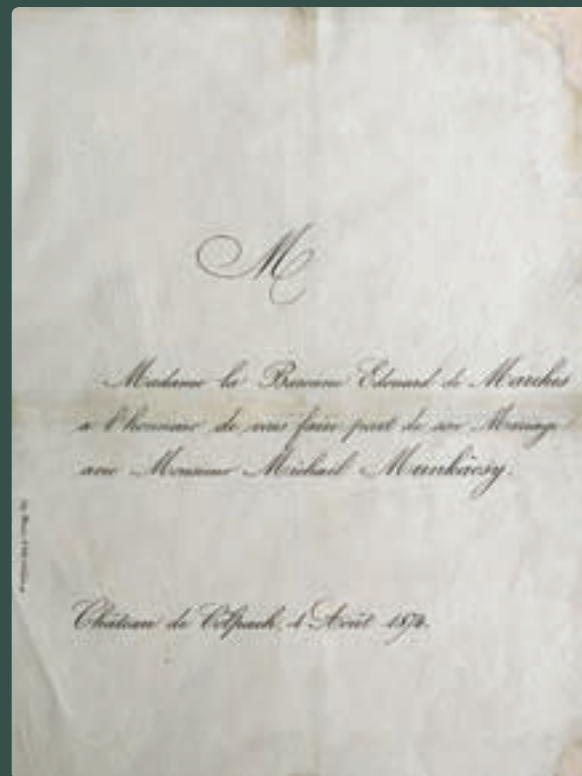 M
Madame la Baronne Edouard de Marches
a l'honneur de vous faire part de son Mariage
avec Monsieur Michael Munkácsy.
Château de Colpach, 4 Août 1874.